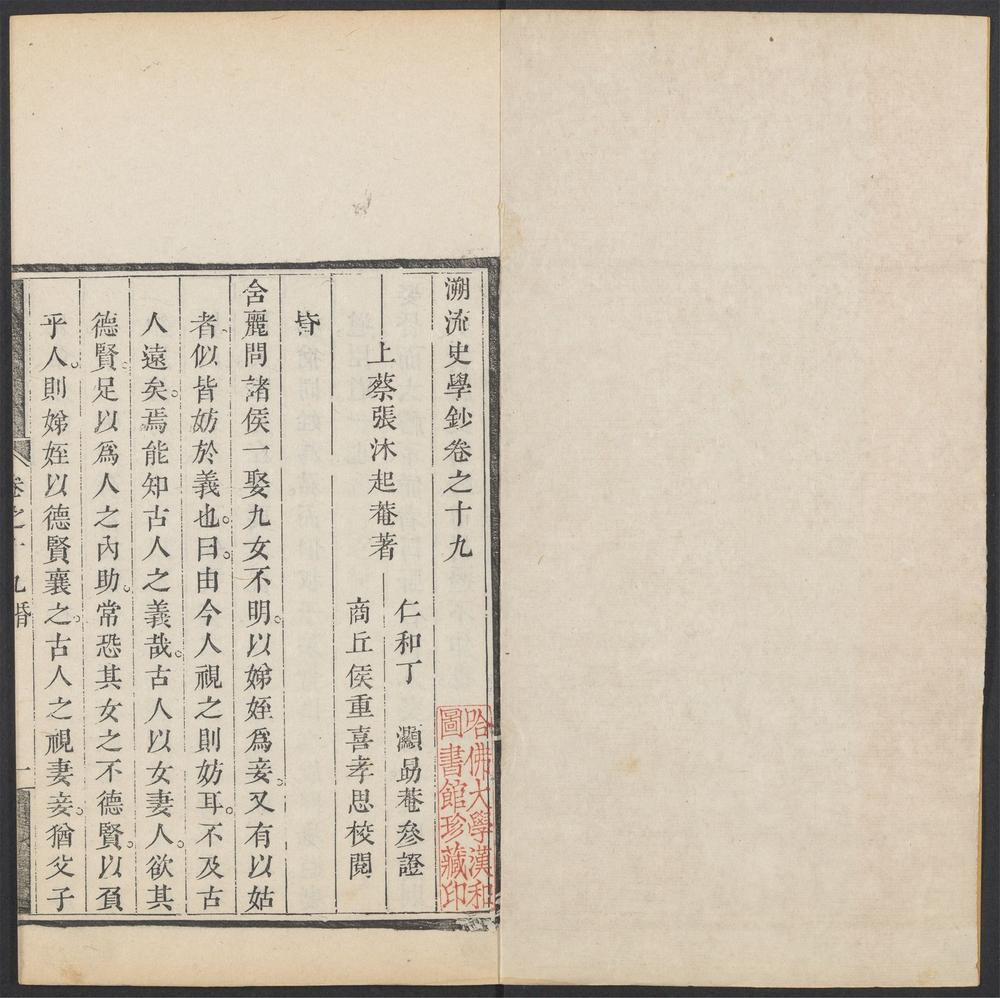 溯流史學鈔卷之十九
上蔡張沐起菴著
仁和丁　灝勗菴參證
商丘侯重喜孝思校閱
昏
舍麗問諸侯一娶九女不明。以娣姪爲妾。又有以姑
者似皆妨於義也。曰。由今人視之則妨耳。不及古
人遠矣。焉能知古人之義哉。古人以女妻人。欲其
德賢。足以爲人之內助。常恐其女之不德賢。以負
乎人。則娣姪以德賢襄之。古人之視妻妾。猶父子
卷之十九 婚
一
哈佛大學漢和
圖書館珍藏印